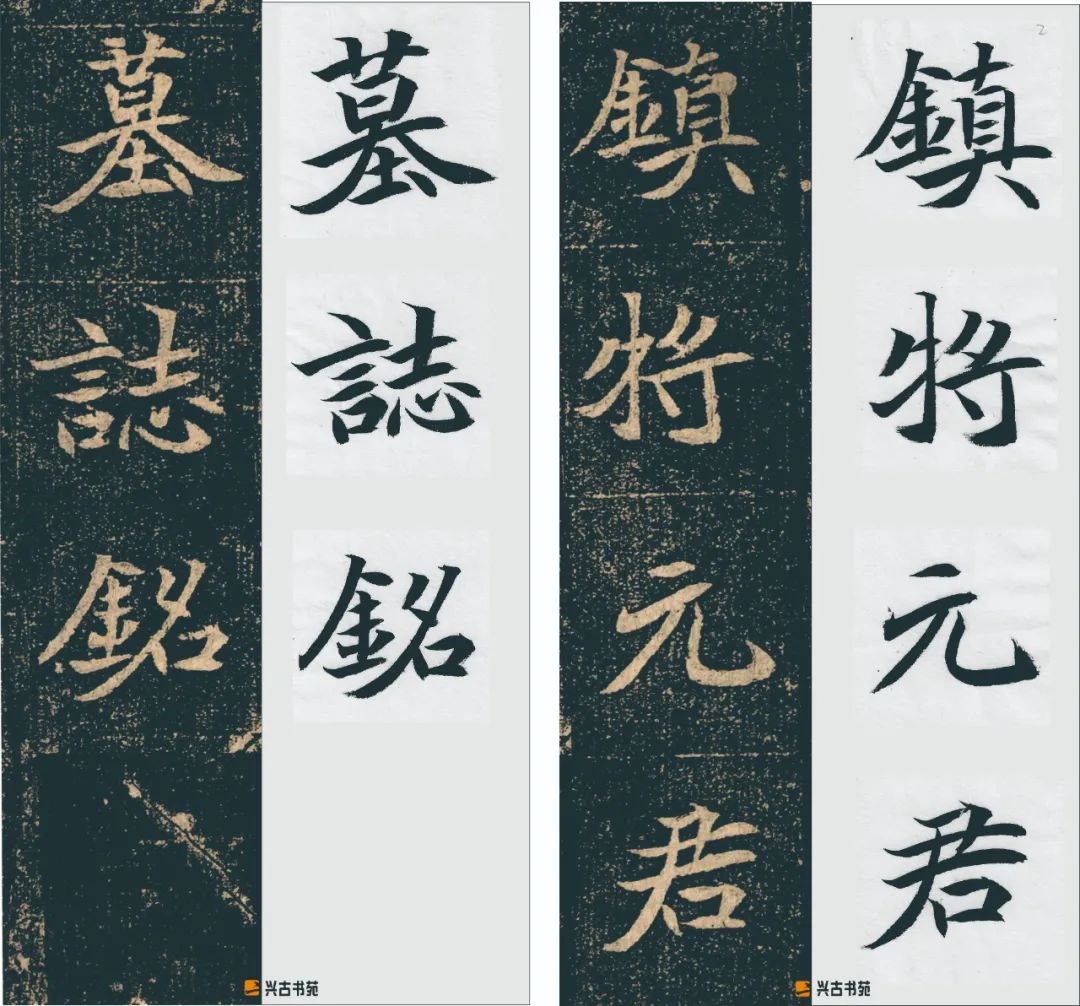 2
鎮將元君
鎮將元君
兴古书苑
墓誌銘
墓誌銘
兴古书苑